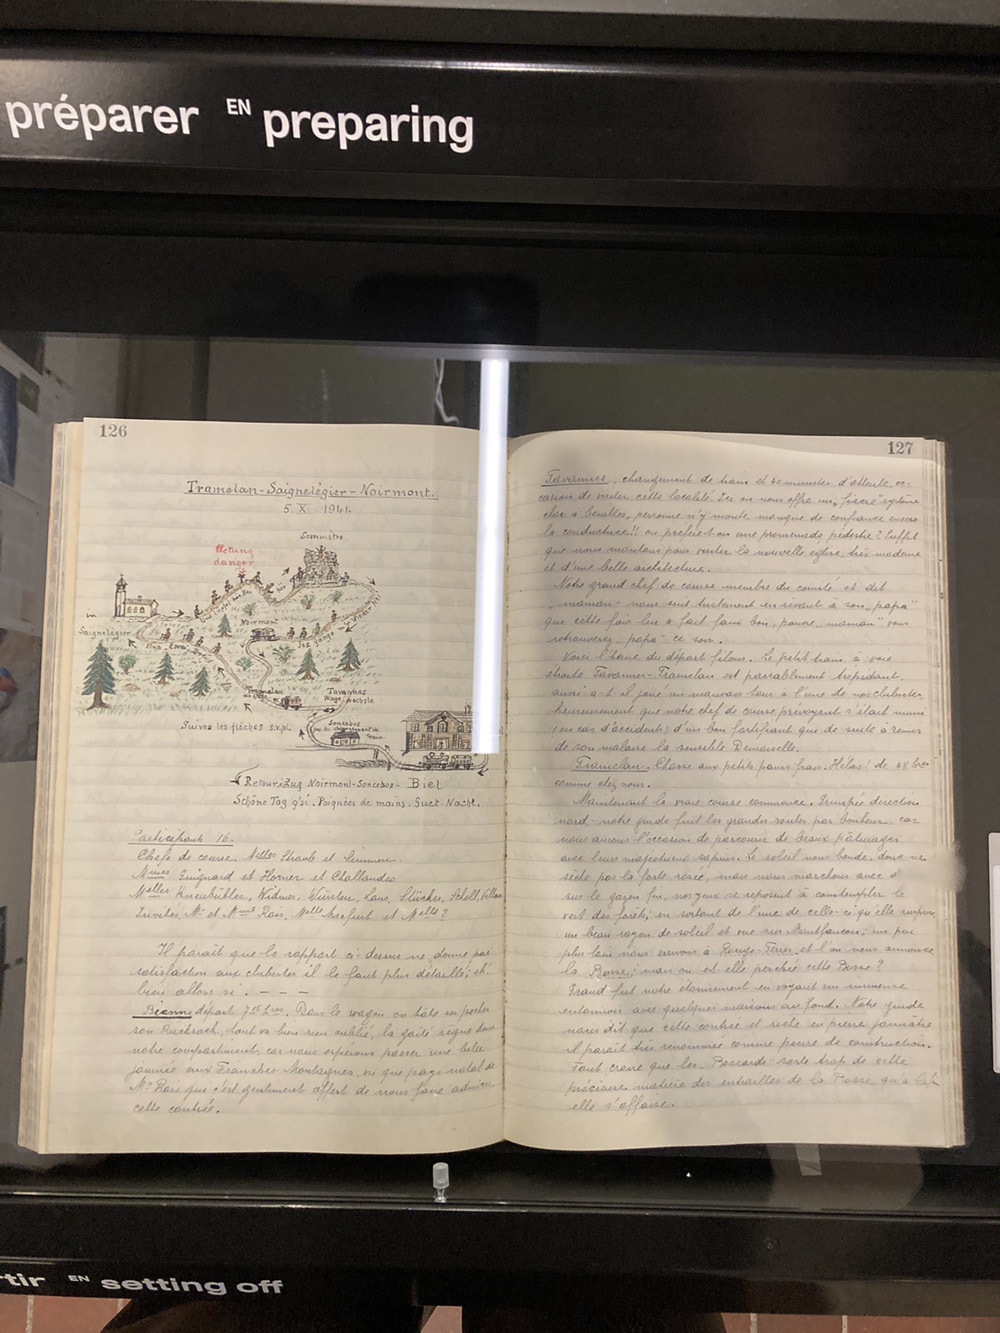 préparer EN preparing
126
Tramelan-Saignelégier-Noirmont.
5. X 1941.
Sommêtre
Actung
danger
in
Noirmont
Saignelégier
Tramelan
Tavannes
Wage Wechsle
Suivez les flèches s.v.pl.
Sonceboz
Train
Retour: Zug Noirmont-Sonceboz- Biel
Schöne Tag g'si. Poignées de mains. Guet-Nacht.
Participants 16.
Chefs de course. Melles Straub et
Mmes Guignard et Horner et Challandes
Melles Kneubühler, Widmer, Würsten, Kaus, Stücker, Scholl,
Invités, Mr et Mme Rais, Melle et Melle ?
Il paraît que le rapport ci-dessus ne donne pas
satisfaction aux clubistes il le faut plus détaillé; eh!
bien allons-y. - - -
Bienne départ 7.15 hres. Dans le wagon on
son Rucksack, tout va bien rien oublié, la gaîté règne dans
notre compartiment, car nous espérions passer une belle
journée aux Franches-Montagnes, vu que pays natal de
Mr Rais que s'est gentiment offert de nous faire admirer
cette contrée.
127
Tavannes, changement de train et 40 minutes d'attente, oc-
casion de visiter cette localité. Ici on nous offre un "fiacre" système
char à personne n'y monte, manque de confiance envers
la conductrice!! ou préfère-t-on une promenade pédestre? Suffit
que nous montons pour visiter la nouvelle église, très moderne
et d'une belle architecture.
Notre grand chef de course membre du comité et dit
"maman" nous suit tristement en rêvant à son "papa"
que cette fois lui a fait faux bon, pauvre "maman" vous
retrouverez "papa" ce soir.
Voici l'heure du départ filons. Le petit train à voie
étroite Tavannes-Tramelan est passablement trépidant,
aussi a-t-il joué un mauvais tour à l'une de nos clubistes,
heureusement que notre chef de course prévoyant s'était muni
(en cas d'accidents) d'un bon fortifiant que de suite a remis
de son malaise la sensible Demoiselle.
Tramelan. Chasse aux petits pains frais. Hélas! de 48 hres
comme chez nous.
Maintenant la vraie course commence. Grimpée direction
nord; notre guide fuit les grandes routes par bonheur, car
nous aurons l'occasion de parcourir de beaux pâturages
avec leurs majestueux sapins. Le soleil nous boude, donc ne
sèche pas la forte rosée, mais nous marchons avec
sur le gazon fin, nos yeux se reposent à contempler le
vert des forêts; en sortant de l'une de celle-ci qu'elle surprise,
un beau rayon de soleil et vue sur Montfaucon; un peu
plus loin nous arrivons à Rouge-Terres et l'on nous annonce
la Bosse; mais où est-elle perchée cette Bosse?
Grand fut notre étonnement en voyant un immense
entonnoir avec quelques maisons au fond. Notre guide
nous dit que cette contrée est riche en pierre jaunâtre
il paraît très renommée comme pierre de construction.
Faut croire que les sorte trop de cette
précieuse matière des entrailles de la Bosse
elle s'affaisse.
rtir EN setting off